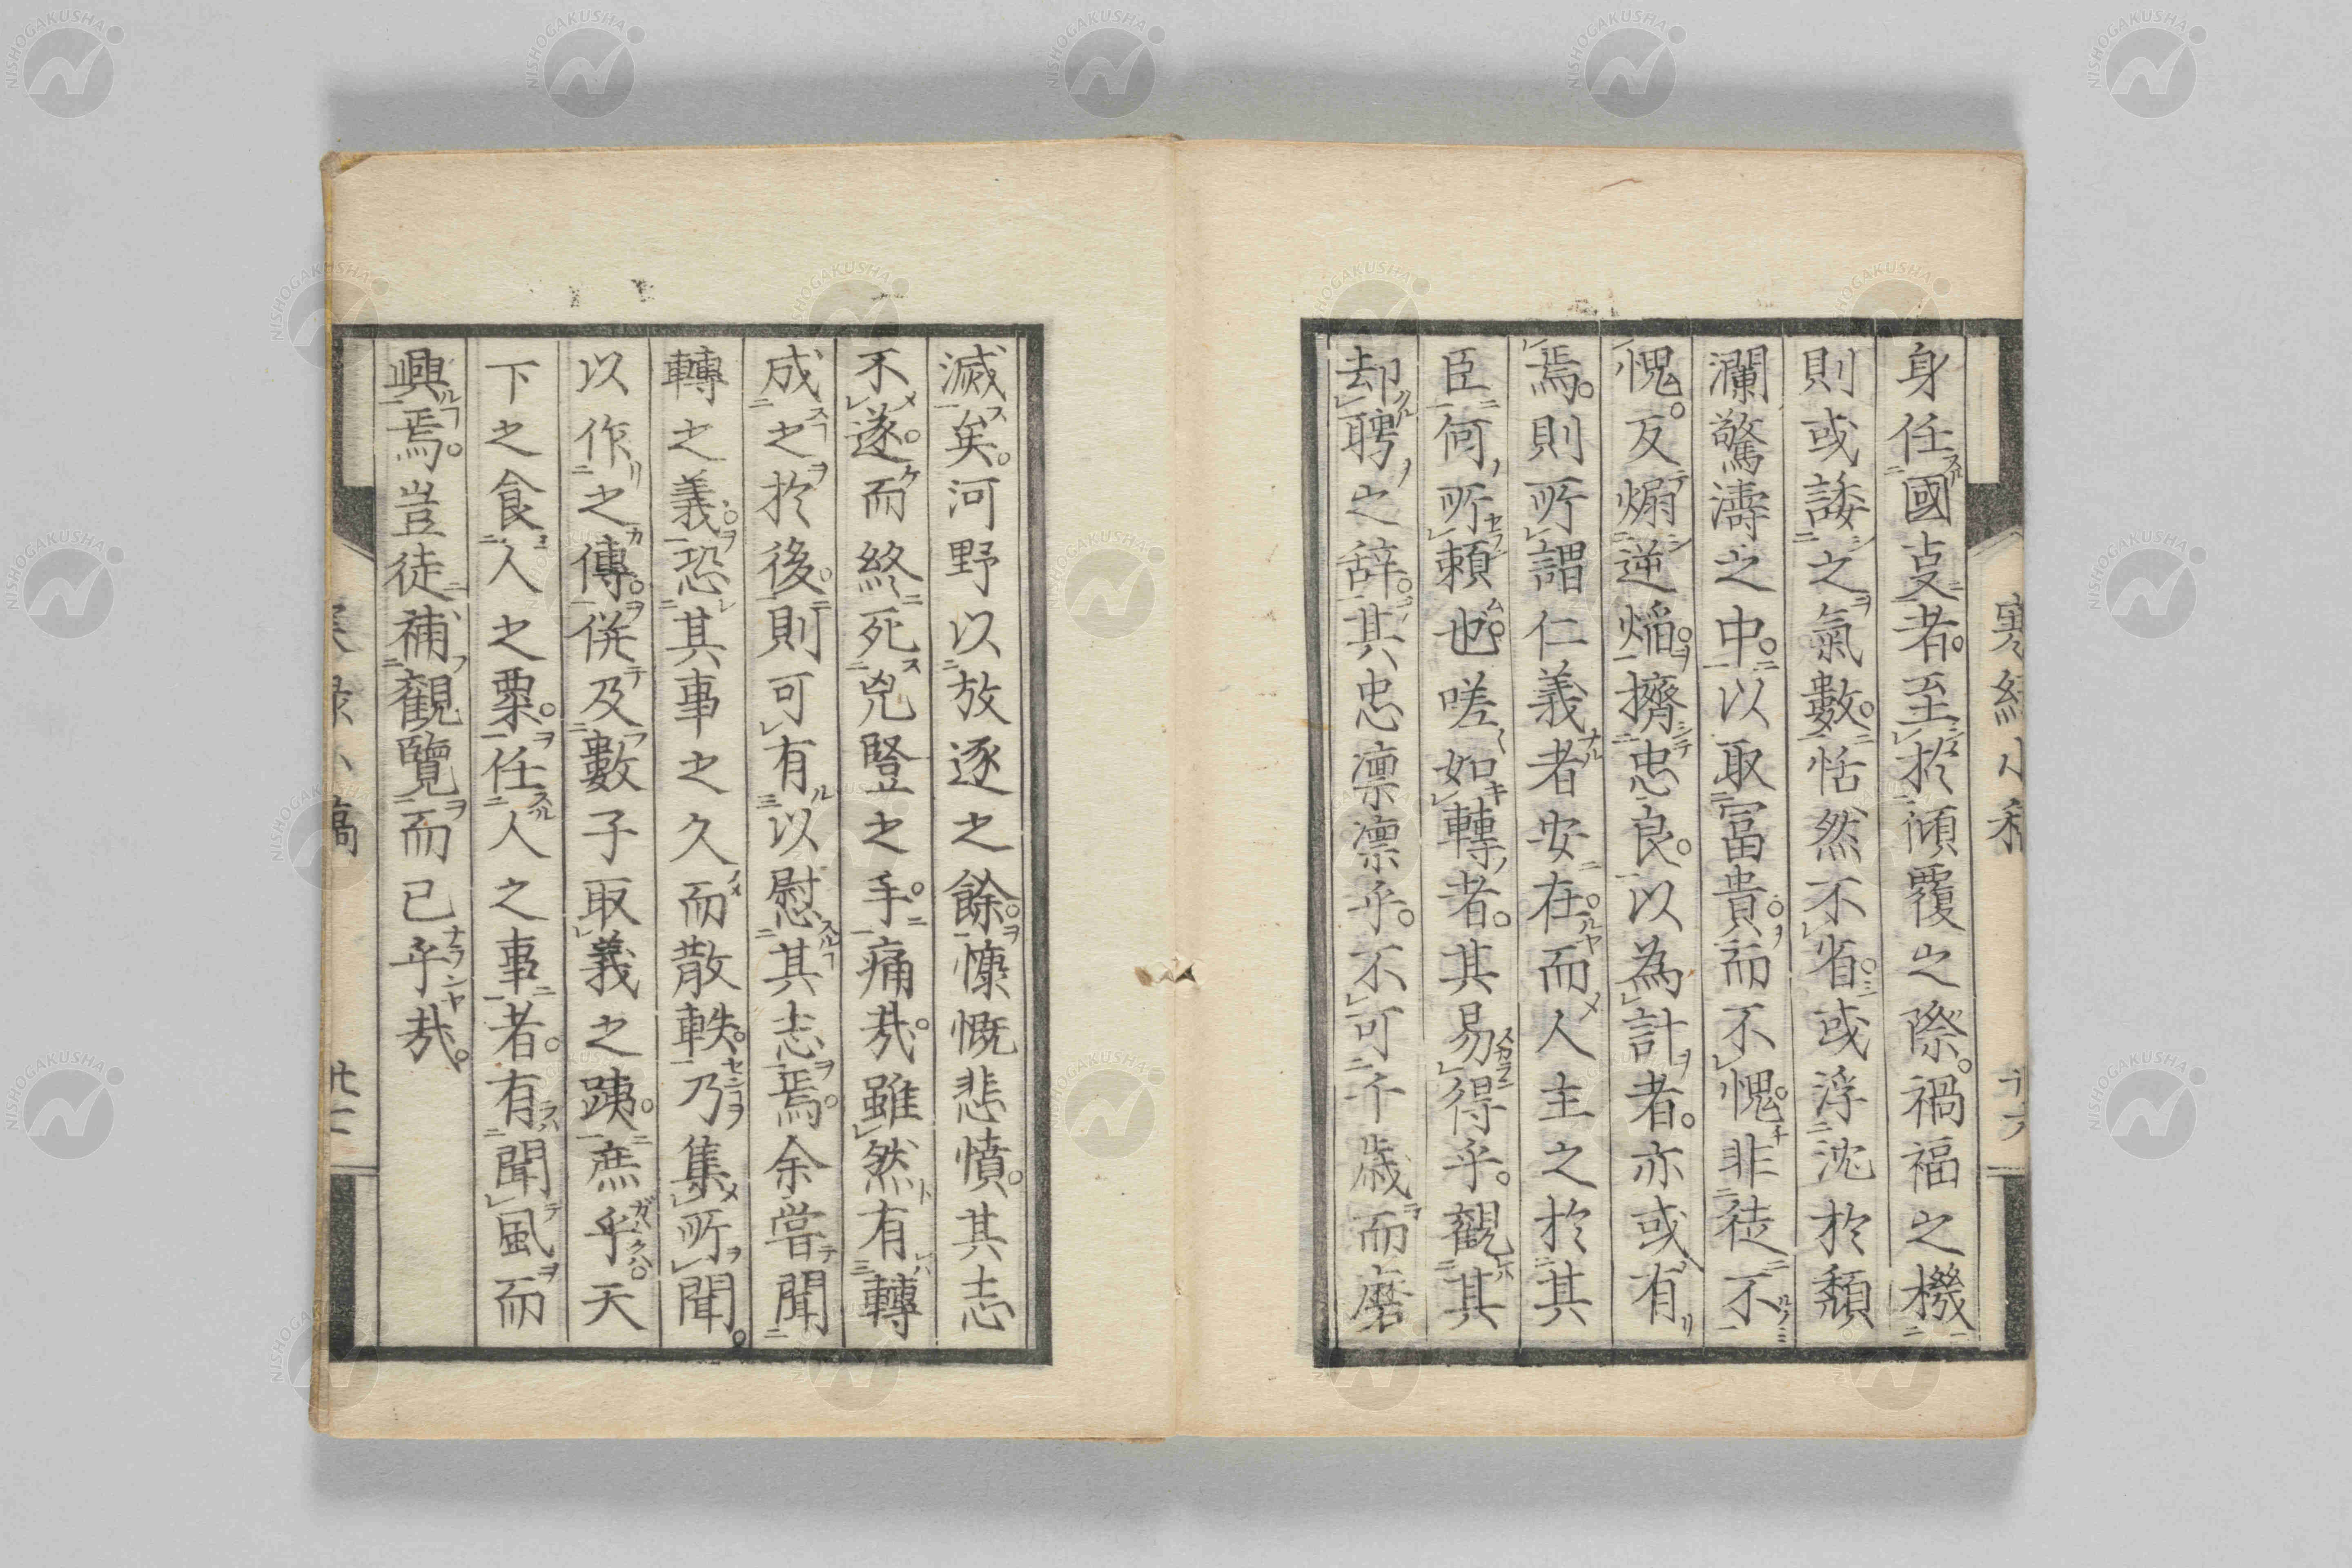 身任國㕝者。至於傾覆之際。禍福之機
則或諉之氣數。恬然不省。或浮沈於頽
瀾驚濤之中。以取富貴。而不愧。非徒不
愧。反煽逆焰。擠忠良。以為計者。亦或有
焉。則所謂仁義者安在。而人主之於其
臣何所頼也。嗟如轉者。其易得乎。観其
却聘之辞。其忠凛凛乎。不可千歳而磨
滅矣。河野以放逐之餘。慷慨悲憤。其志
不遂。而終死兇豎之手。痛哉。雖然有轉
成之於後。則可有以慰其志焉。余嘗聞
轉之義。恐其事之久而散軼。乃集所聞。
以作之傳。併及數子取義之跡。庶乎。天
下之食人之粟。任人之事者。有聞風而
興焉。豈徒補觀覽而已乎哉。